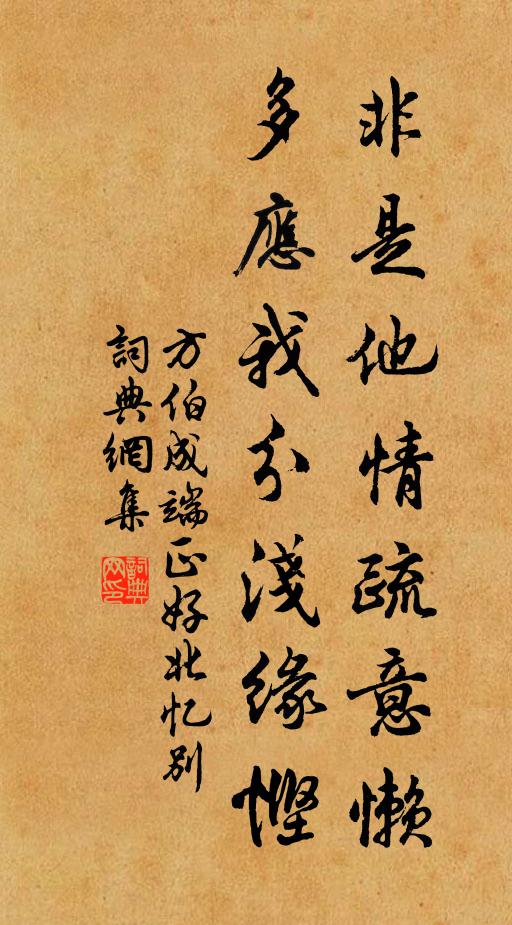 非是他情疏意懒
多應我分淺緣慳
方伯成端正好北忆别
詞典網集
詞典網印